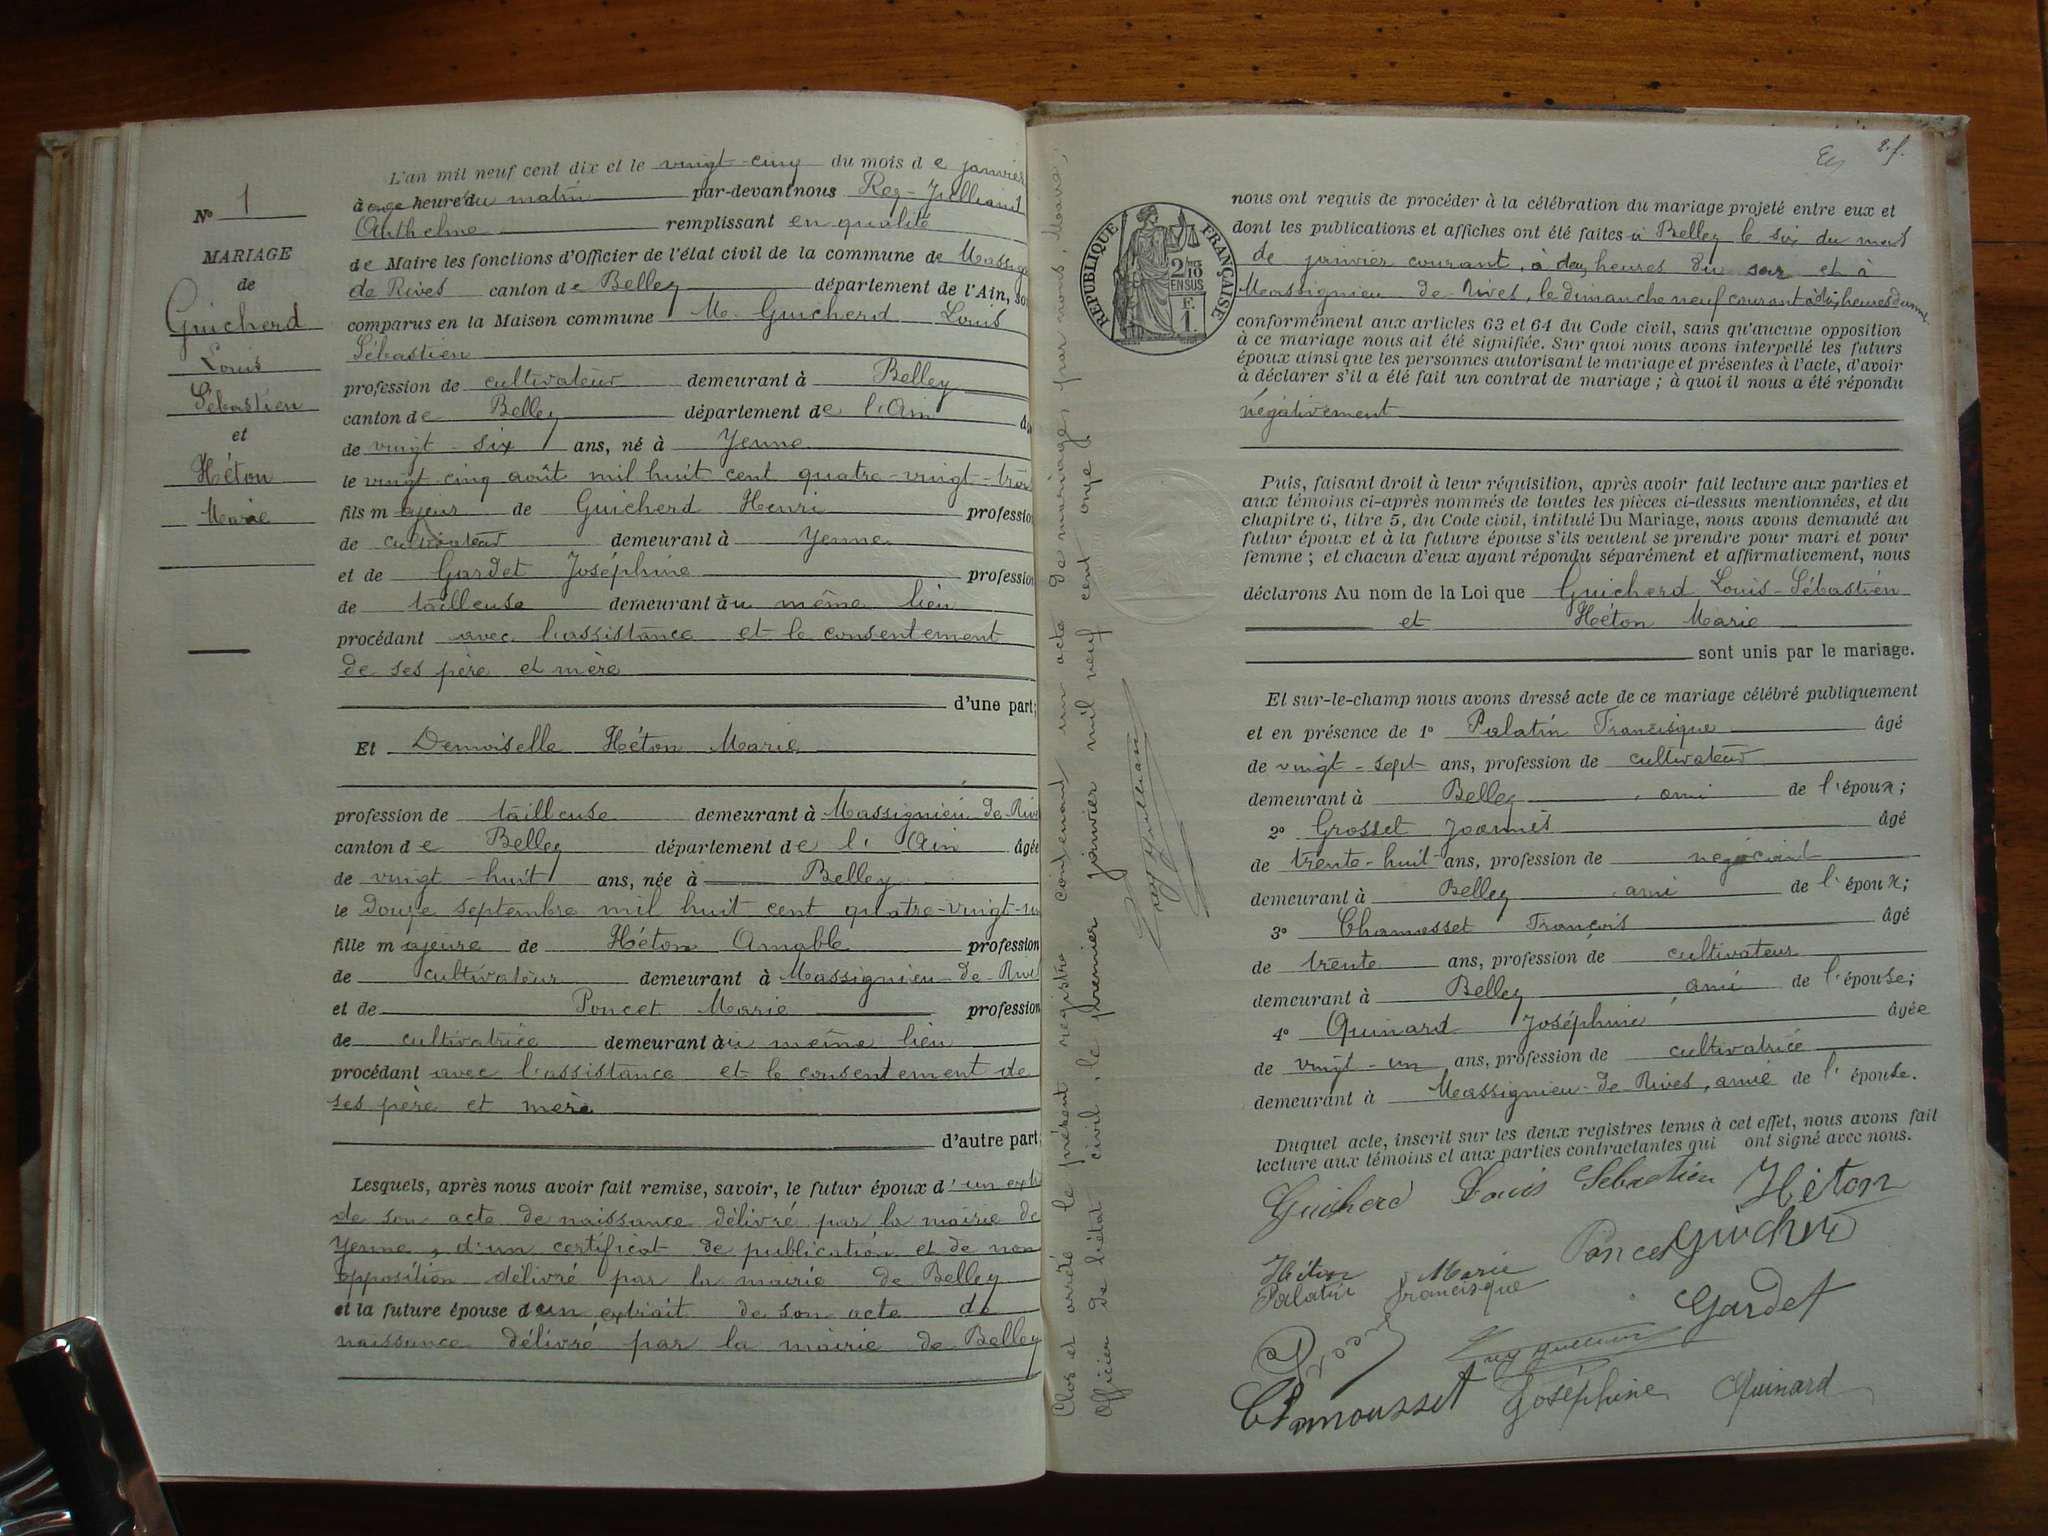 N° 1
MARIAGE
de
Guicherd
Louis
Sébastien
et
Héton
Marie
L'an mil neuf cent dix et le vingt-cinq du mois de janvier
à onze heures du matin par-devant nous Rey-Juilliand
Anthelme remplissant en qualité
de Maire les fonctions d'Officier de l'état civil de la commune de Massig
de Rives canton de Belley département de l'Ain, so
comparus en la Maison commune M. Guicherd Louis
Sébastien
profession de cultivateur demeurant à Belley
canton de Belley département de l'Ain
de vingt-six ans, né à Yenne
le vingt cinq août mil huit cent quatre-vingt-trois
fils majeur de Guicherd Henri profession
de cultivateur demeurant à Yenne
et de Gardet Joséphine profession
de tailleuse demeurant au même lieu
procédant avec l'assistance et le consentement
de ses père et mère
d'une part;
Et Demoiselle Héton Marie
profession de tailleuse demeurant à Massignieu de Riv
canton de Belley département de l'Ain âgée
de vingt-huit ans, née à Belley
le douze septembre mil huit cent quatre-vingt-un
fille majeure de Héton Amable profession
de cultivateur demeurant à Massignieu-de-Rives
et de Poncet Marie profession
de cultivatrice demeurant au même lieu
procédant avec l'assistance et le consentement de
ses père et mère
d'autre part;
Lesquels, après nous avoir fait remise, savoir, le futur époux d'un ext
de son acte de naissance délivré par la mairie de
Yenne, d'un certificat de publication et de non
opposition délivré par la mairie de Belley
et la future épouse d'un extrait de son acte de
naissance délivré par la mairie de Belley
Clos et arrêté le présent registre contenant un acte de mariage, par nous, Maire,
Officier de l'état civil, le premier janvier mil neuf cent onze
Rey Juilliand
2. f.
RÉPUBLIQUE FRANÇAISE
2/10
EN SUS
F.
1
nous ont requis de procéder à la célébration du mariage projeté entre eux et
dont les publications et affiches ont été faites à Belley le six du mois
de janvier courant, à deux heures du soir et à
Massignieu de Rives, le dimanche neuf courant à dix heures du mat
conformément aux articles 63 et 64 du Code civil, sans qu'aucune opposition
à ce mariage nous ait été signifiée. Sur quoi nous avons interpellé les futurs
époux ainsi que les personnes autorisant le mariage et présentes à l'acte, d'avoir
à déclarer s'il a été fait un contrat de mariage; à quoi il nous a été répondu
négativement
Puis, faisant droit à leur réquisition, après avoir fait lecture aux parties et
aux témoins ci-après nommés de toutes les pièces ci-dessus mentionnées, et du
chapitre 6, titre 5, du Code civil, intitulé Du Mariage, nous avons demandé au
futur époux et à la future épouse s'ils veulent se prendre pour mari et pour
femme; et chacun d'eux ayant répondu séparément et affirmativement, nous
déclarons Au nom de la Loi que Guicherd Louis-Sébastien
et Héton Marie
sont unis par le mariage.
Et sur-le-champ nous avons dressé acte de ce mariage célébré publiquement
et en présence de 1° Palatin Francisque âgé
de vingt-sept ans, profession de cultivateur
demeurant à Belley, ami de l'époux;
2° Grosset Joannès âgé
de trente-huit ans, profession de négociant
demeurant à Belley, ami de l'époux;
3° Chamosset François âgé
de trente ans, profession de cultivateur
demeurant à Belley, ami de l'épouse;
4° Quinard Joséphine âgée
de vingt-un ans, profession de cultivatrice
demeurant à Massignieu-de-Rives, amie de l'épouse.
Duquel acte, inscrit sur les deux registres tenus à cet effet, nous avons fait
lecture aux témoins et aux parties contractantes qui ont signé avec nous.
Guicherd Louis Sébastien Héton
Poncet Guicherd
Héton Marie
Palatin francisque
Gardet
Rey Juilliand
Chamousset Joséphine Quinard